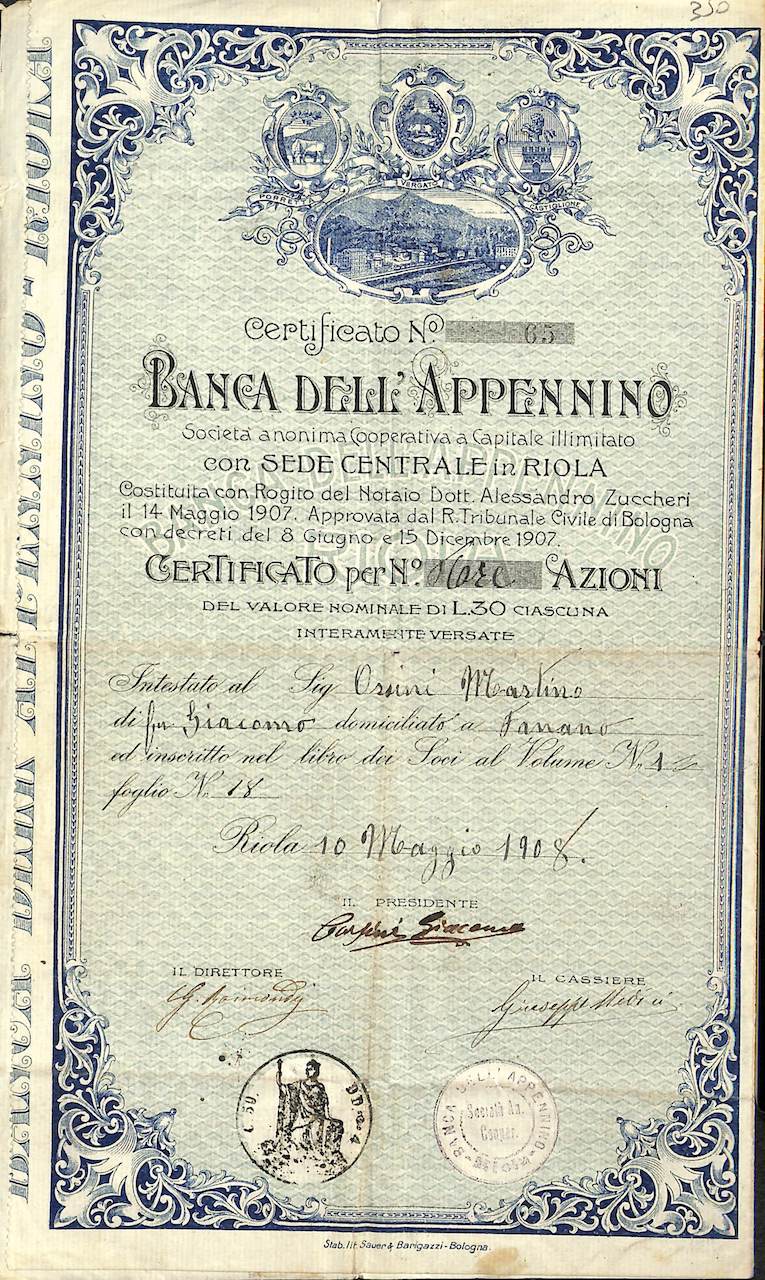 350
PORRETTA
VERGATO
CASTIGLIONE
Certificato N.º 65
BANCA DELL'APPENNINO
Società anonima Cooperativa a Capitale illimitato
con SEDE CENTRALE in RIOLA
Costituita con Rogito del Notaio Dott. Alessandro Zuccheri
il 14 Maggio 1907. Approvata dal R. Tribunale Civile di Bologna
con decreti del 8 Giugno e 15 Dicembre 1907.
BANCA DELL'APPENNINO
RIOLA
CERTIFICATO per N.º AZIONI
DEL VALORE NOMINALE DI L.30 CIASCUNA
INTERAMENTE VERSATE
Intestato al Sig Orsini Martino
di fu Giacomo domiciliato a Fanano
ed inscritto nel libro dei Soci al Volume N. 1
foglio N. 18
Riola 10 Maggio 1908.
IL PRESIDENTE
Giacomo
IL DIRETTORE
IL CASSIERE
G. Raimondi
Giuseppe Medici
BANCA DELL'APPENNINO
Società An.
Cooper.
Stab. lit. Sauer & Barigazzi - Bologna.